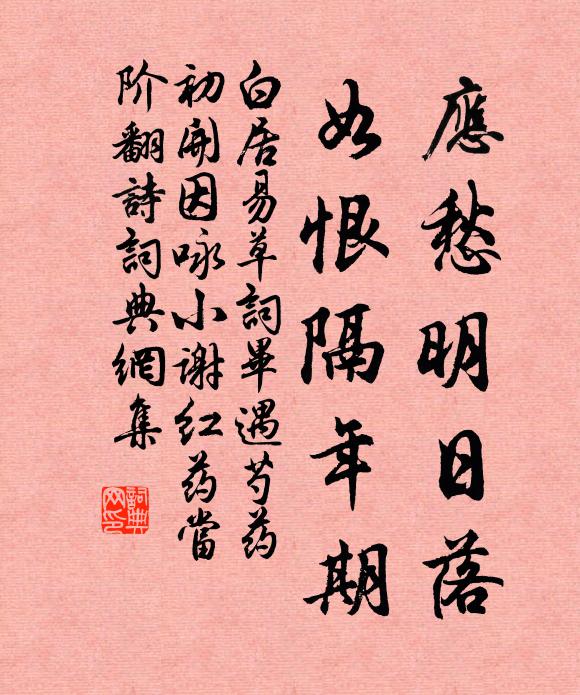 應愁明日落
如恨隔年期
白居易草詞畢遇芍药
初開因咏小謝红药當
阶翻詩詞典網集
詞典
网印